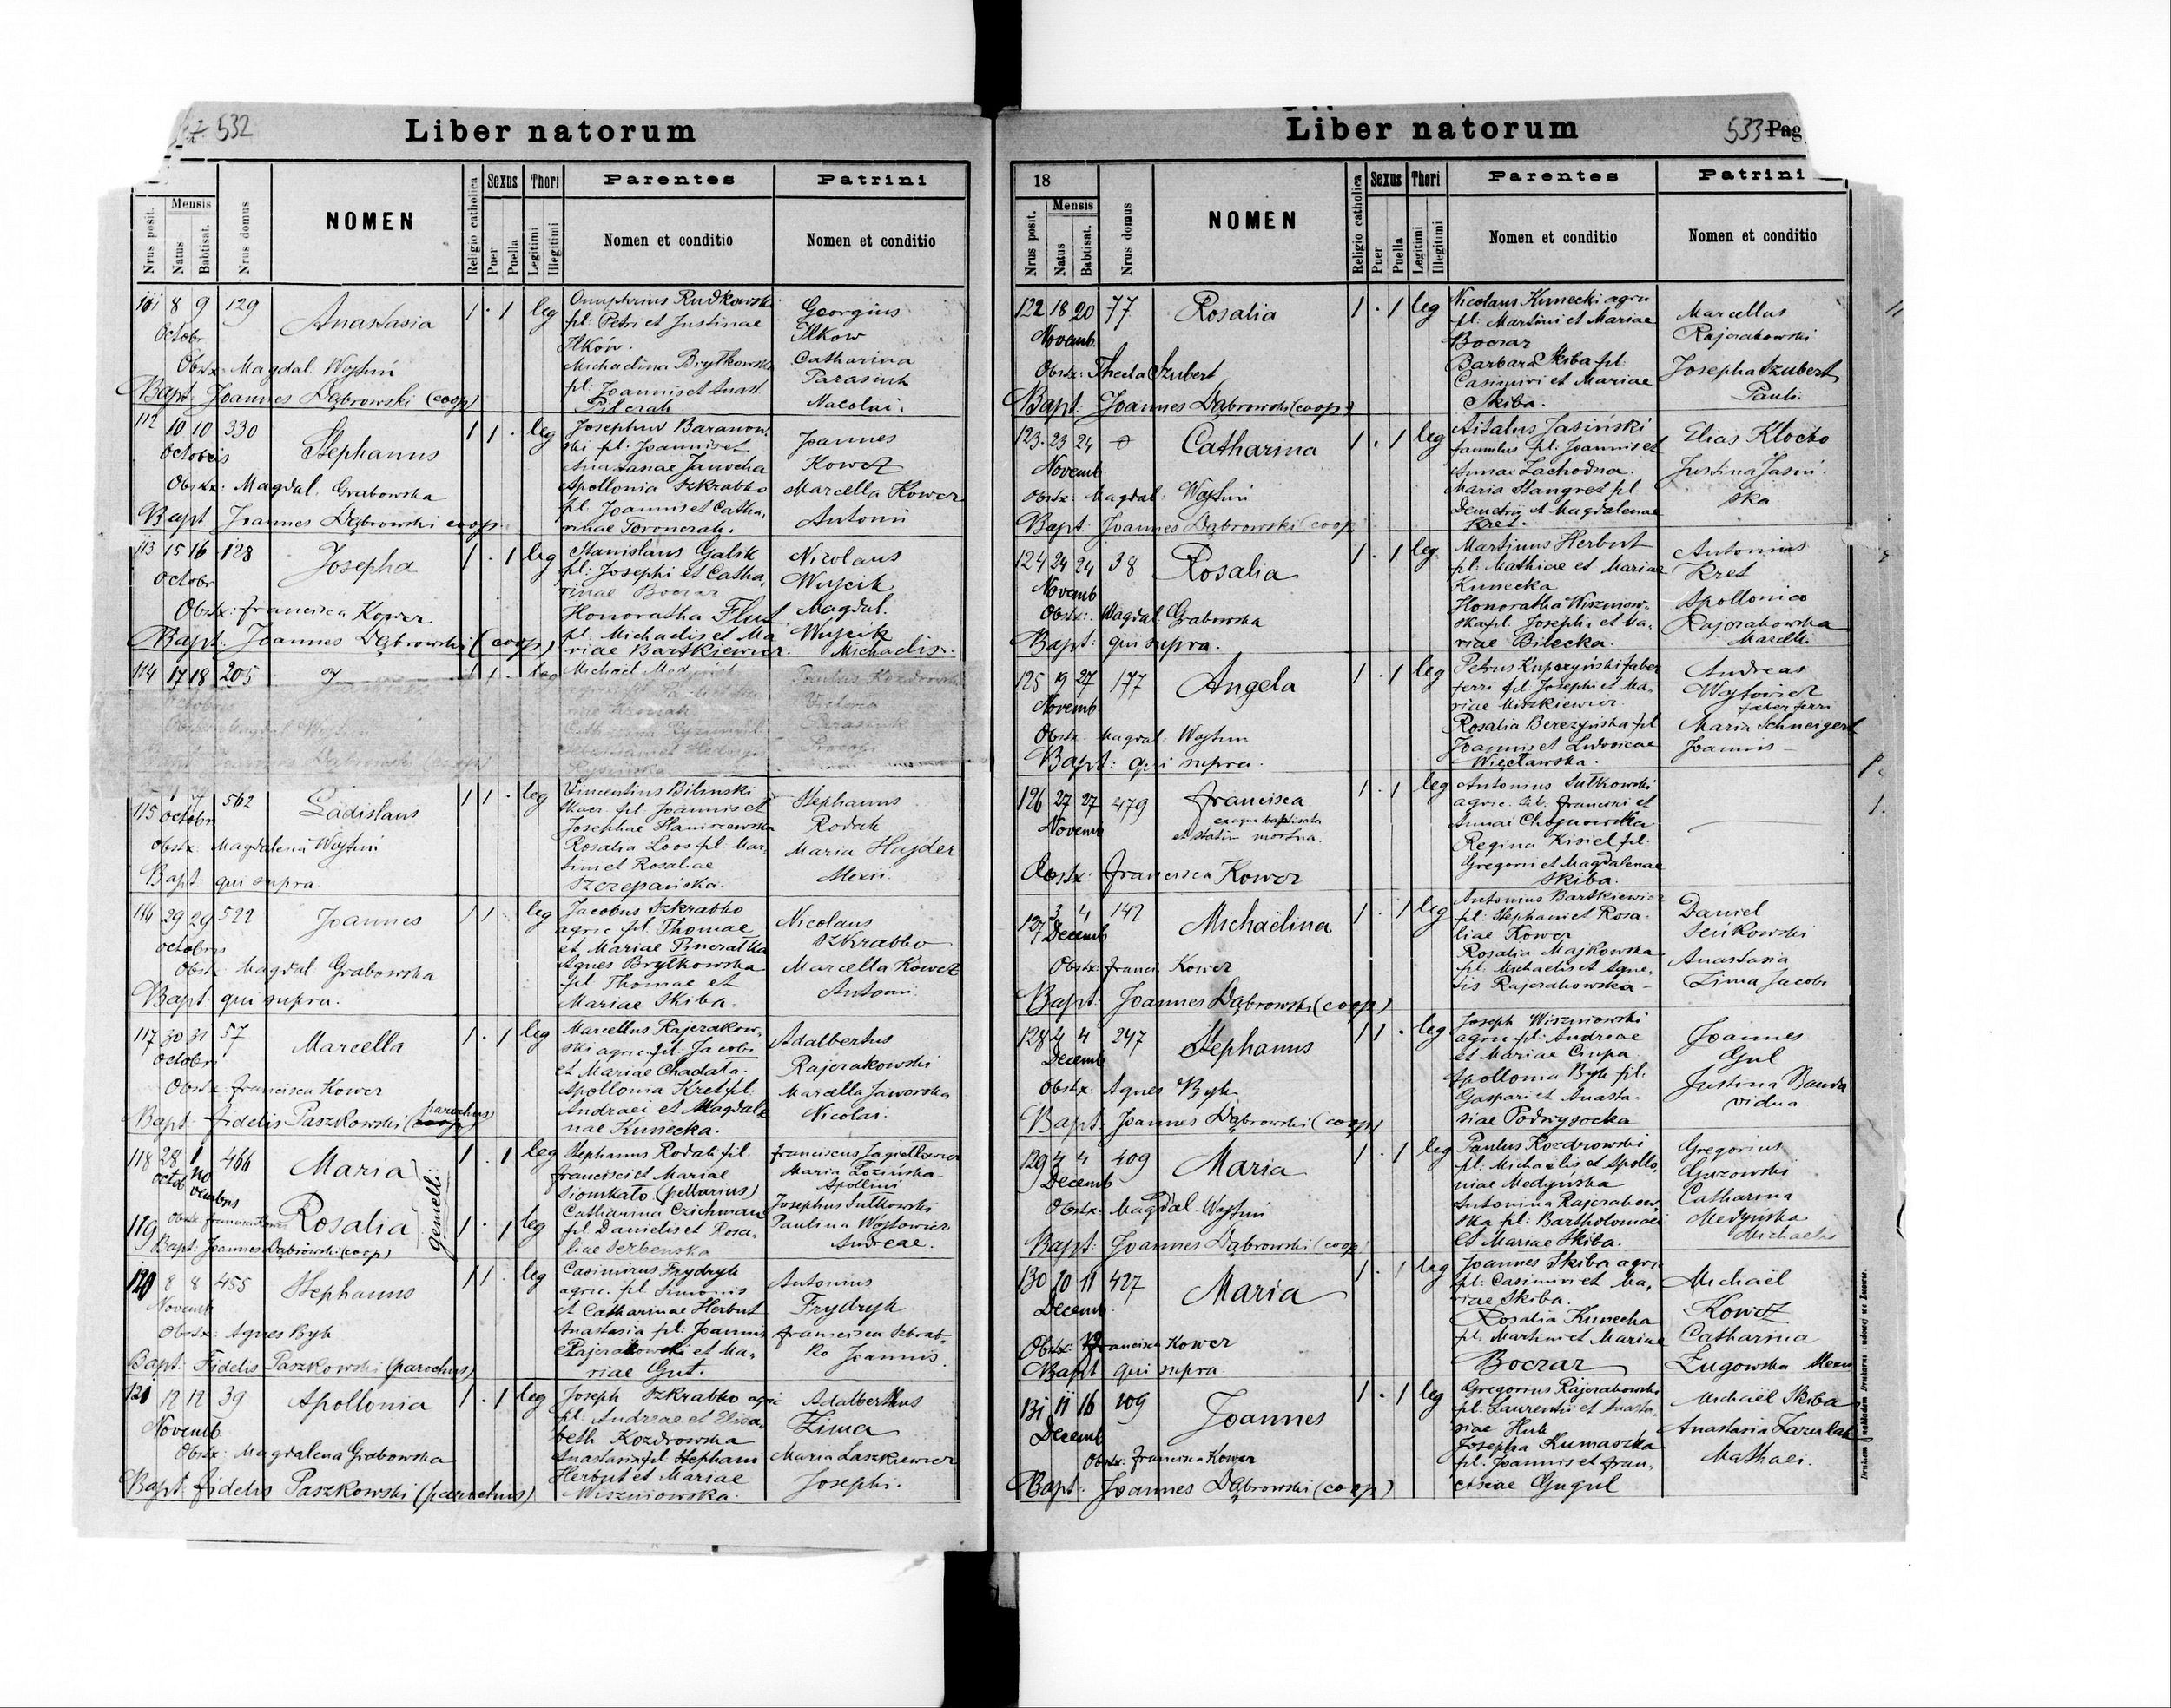 532
Liber natorum
Nrus posit.
Mensis
Natus
Babtisat.
Nrus domus
NOMEN
Religio catholica
Sexus
Puer
Puella
Thori
Legitimi
Illegitimi
Parentes
Nomen et conditio
Patrini
Nomen et conditio
8 9 129
Octobr
Anastasia
1 · 1 leg
Onuphrius Rudkowski
fil: Petri et Justinae
Ilków.
Michaelina Brytkowska
fil: Joannis et Anast
Georgius
Ilkow
Catharina
Parasiuk
Nicolai.
Obstx: Magdal. Wojtuń
Bapt: Joannes Dąbrowski (coop)
112 10 10 330
Octobris
Stephanus
1 1 · leg
Josephus Baranow.
ski fil. Joannis et
Anastasiae Janocha
Apollonia Szkrabko
fil: Joannis et Catha,
rinae Toronczak.
Joannes
Kowcz
Marcella Kowcz
Antonii
Obstx: Magdal. Grabowska
Bapt Joannes Dąbrowski coop.
113 15 16 128
Octobr
Josepha
1 · 1 leg
Stanislaus Galik
fil: Josephi et Catha,
rinae Boczar
Honoratha Flut
fil: Michaelis et Ma
riae Bartkiewicz.
Nicolaus
Wujcik
Magdal.
Wujcik
Michaelis.
Obstx: Francisca Kowcz
Bapt: Joannes Dąbrowski (coop)
114 17 18 205
Octobris
1 1 · leg
Michael
Paulus Kozdrowski
Victoria
Parasiuk
Procopi
Magdal Wojtuń
Bapt Joannes Dąbrowski (coop)
115 562
Octobr
Ladislaus
1 1 · leg
Vincentius Bilinski
fil. Joannis et
Josephae Haniszewska
Rosalia Loos fil. Mar,
tini et Rosaliae
Szczepańska.
Stephanus
Rodak
Maria Hajder
Alexii
Obstx: Magdalena Wojtuń
Bapt: qui supra
116 29 29 522
Octobris
Joannes
1 1 leg
Jacobus Szkrabko
agric. fil. Thomae
et Mariae
Agnes Brytkowska
fil Thomae et
Mariae Skiba.
Nicolaus
Szkrabko
Marcella Kowcz
Antonii
Obstx: Magdal Grabowska
Bapt: qui supra.
117 30 31 57
Octobri
Marcella
1 · 1 leg
Marcellus Rajczakow,
ski agric. fil: Jacobi
et Mariae Chadata.
Apollonia Kret fil:
Andraei et Magdale
nae Kunecka.
Adalbertus
Rajczakowski
Marcella Jaworska
Nicolai.
Obstx: Francisca Kowcz
Bapt: Fidelis Paszkowski (parochus)
118 28 1 466
Octob No
vembris
Maria
gemelli
1 · 1 leg
Stephanus Rodak fil.
Francisci et Mariae
Siomkato (pellarius)
Catharina Czichman
fil Danielis et Rosa,
liae Serbenska
Franciscus Jagiellowicz
Maria Łozińska
Apollini
Josephus Sutkowski
Paulina Wójtowicz
Andreae.
119
Rosalia
1 · 1 leg
Obstx Francisca Kowcz
Bapt: Joannes Dąbrowski (coop)
120 8 8 455
Novemb
Stephanus
1 1 · leg
Casimirus Frydryk
agric. fil. Simonis
et Catharinae Herbut
Anastasia fil: Joannis
Rajczakowski et Ma,
riae Gut.
Antonius
Frydryk
Francisca Szkrab,
ko Joannis.
Obstx: Agnes Byk
Bapt: Fidelis Paszkowski (parochus)
121 12 12 39
Novemb
Apollonia
1 · 1 leg
Joseph Szkrabko agric
fil: Andreae et Elisa,
beth Kozdrowska
Anastasia fil Stephani
Herbut et Mariae
Wiszniowska.
Adalbertus
Zima
Maria Laszkiewicz
Josephi.
Obstx: Magdalena Grabowska
Bapt: Fidelis Paszkowski (parochus)
533 Pag
Liber natorum
18
Nrus posit.
Mensis
Natus
Babtisat.
Nrus domus
NOMEN
Religio catholica
Sexus
Puer
Puella
Thori
Legitimi
Illegitimi
Parentes
Nomen et conditio
Patrini
Nomen et conditio
122 18 20 77
Novemb.
Rosalia
1 · 1 leg
Nicolaus Kunecki agric
fil: Martini et Mariae
Boczar
Barbara Skiba fil.
Casimiri et Mariae
Skiba.
Marcellus
Rajczakowski
Josepha Szubert
Pauli.
Obstx: Thecla Szubert
Bapt: Joannes Dąbrowski (coop)
123. 23 24
Novemb
Catharina
1 · 1 leg
Jasiński
famulus fil. Joannis et
Annae Zachodna.
Maria Stangret fil.
Demetrij et Magdalenae
Kret.
Elias Klocko
Justina Jasiń.
ska
Obstx: Magdal: Wojtuń
Bapt: Joannes Dąbrowski (coop
124 24 24 38
Novemb
Rosalia
1 · 1 leg
Martinus Herbut
fil: Mathiae et Mariae
Kunecka
Honoratha Wiszniow,
ska fil. Josephi et Ma,
riae Bilecka.
Antonius
Kret
Apollonia
Rajczakowska
Marcelli
Obstx: Magdal. Grabowska
Bapt: qui supra.
125 19 27 177
Novemb.
Angela
1 · 1 leg
Petrus Kupczyński faber
ferri fil. Josephi et Ma,
riae Mirkiewicz.
Rosalia Berezyńska fil
Joannis et Ludovicae
Więcławska.
Andreas
Wojtowicz
faber ferri
Maria Schneigert
Joannis
Obstx: Magdal. Wojtuń
Bapt: qui supra.
126 27 27 479
Novemb
Francisca
ex aqua baptisata
et statim mortua.
1 · 1 leg
Antonius Sutkowski
agric. fil. Francisci et
Annae Chojnowska
Regina Kisiel fil.
Gregorii et Magdalenae
Skiba.
Obstx: Francisca Kowcz
127 3 4 142
Decemb
Michaelina
1 · 1 leg
Antonius Bartkiewicz
fil: Stephani et Rosa,
liae Kowcz
Rosalia Majkowska
fil. Michaelis et Agne,
tis Rajczakowska
Daniel
Senkowski
Anastasia
Zima Jacobi
Obstx: Franci. Kowcz
Bapt: Joannes Dąbrowski (coop)
128 4 4 247
Decemb
Stephanus
1 1 · leg
Joseph Wiszniowski
agric. fil: Andreae
et Mariae Ciupa
Apollonia Byk fil.
Gaspari et Anasta,
siae Podwysocka
Joannes
Gul
Justina Banda
vidua.
Obstx: Agnes Byk
Bapt: Joannes Dąbrowski (coop)
129 4 4 409
Decemb
Maria
1 · 1 leg
Paulus Kozdrowski
fil: Michaelis et Apollo,
niae Medyńska
Antonina Rajczakow,
ska fil: Bartholomaei
et Mariae Skiba.
Gregorius
Guzowski
Catharina
Medyńska
Michaelis
Obstx: Magdal. Wojtuń
Bapt: Joannes Dąbrowski (coop
130 10 11 427
Decemb.
Maria
1 · 1 leg
Joannes Skiba agric
fil: Casimiri et Ma,
riae Skiba.
Rosalia Kunecka
fil. Martini et Mariae
Boczar
Michaël
Kowcz
Catharina
Ługowska Alexii
Obstx: Francisca Kowcz
Bapt qui supra
131 11 16 109
Decemb
Joannes
1 · 1 leg
Gregorius Rajczakowski
fil: Laurentii et Anasta,
siae Huk
Josepha Kumaszka
fil: Joannis et Fran,
ciscae Gugul
Michaël Skiba
Anastasia Zazulak
Mathaei.
Obstx. Francisca Kowcz
Bapt: Joannes Dąbrowski (coop)